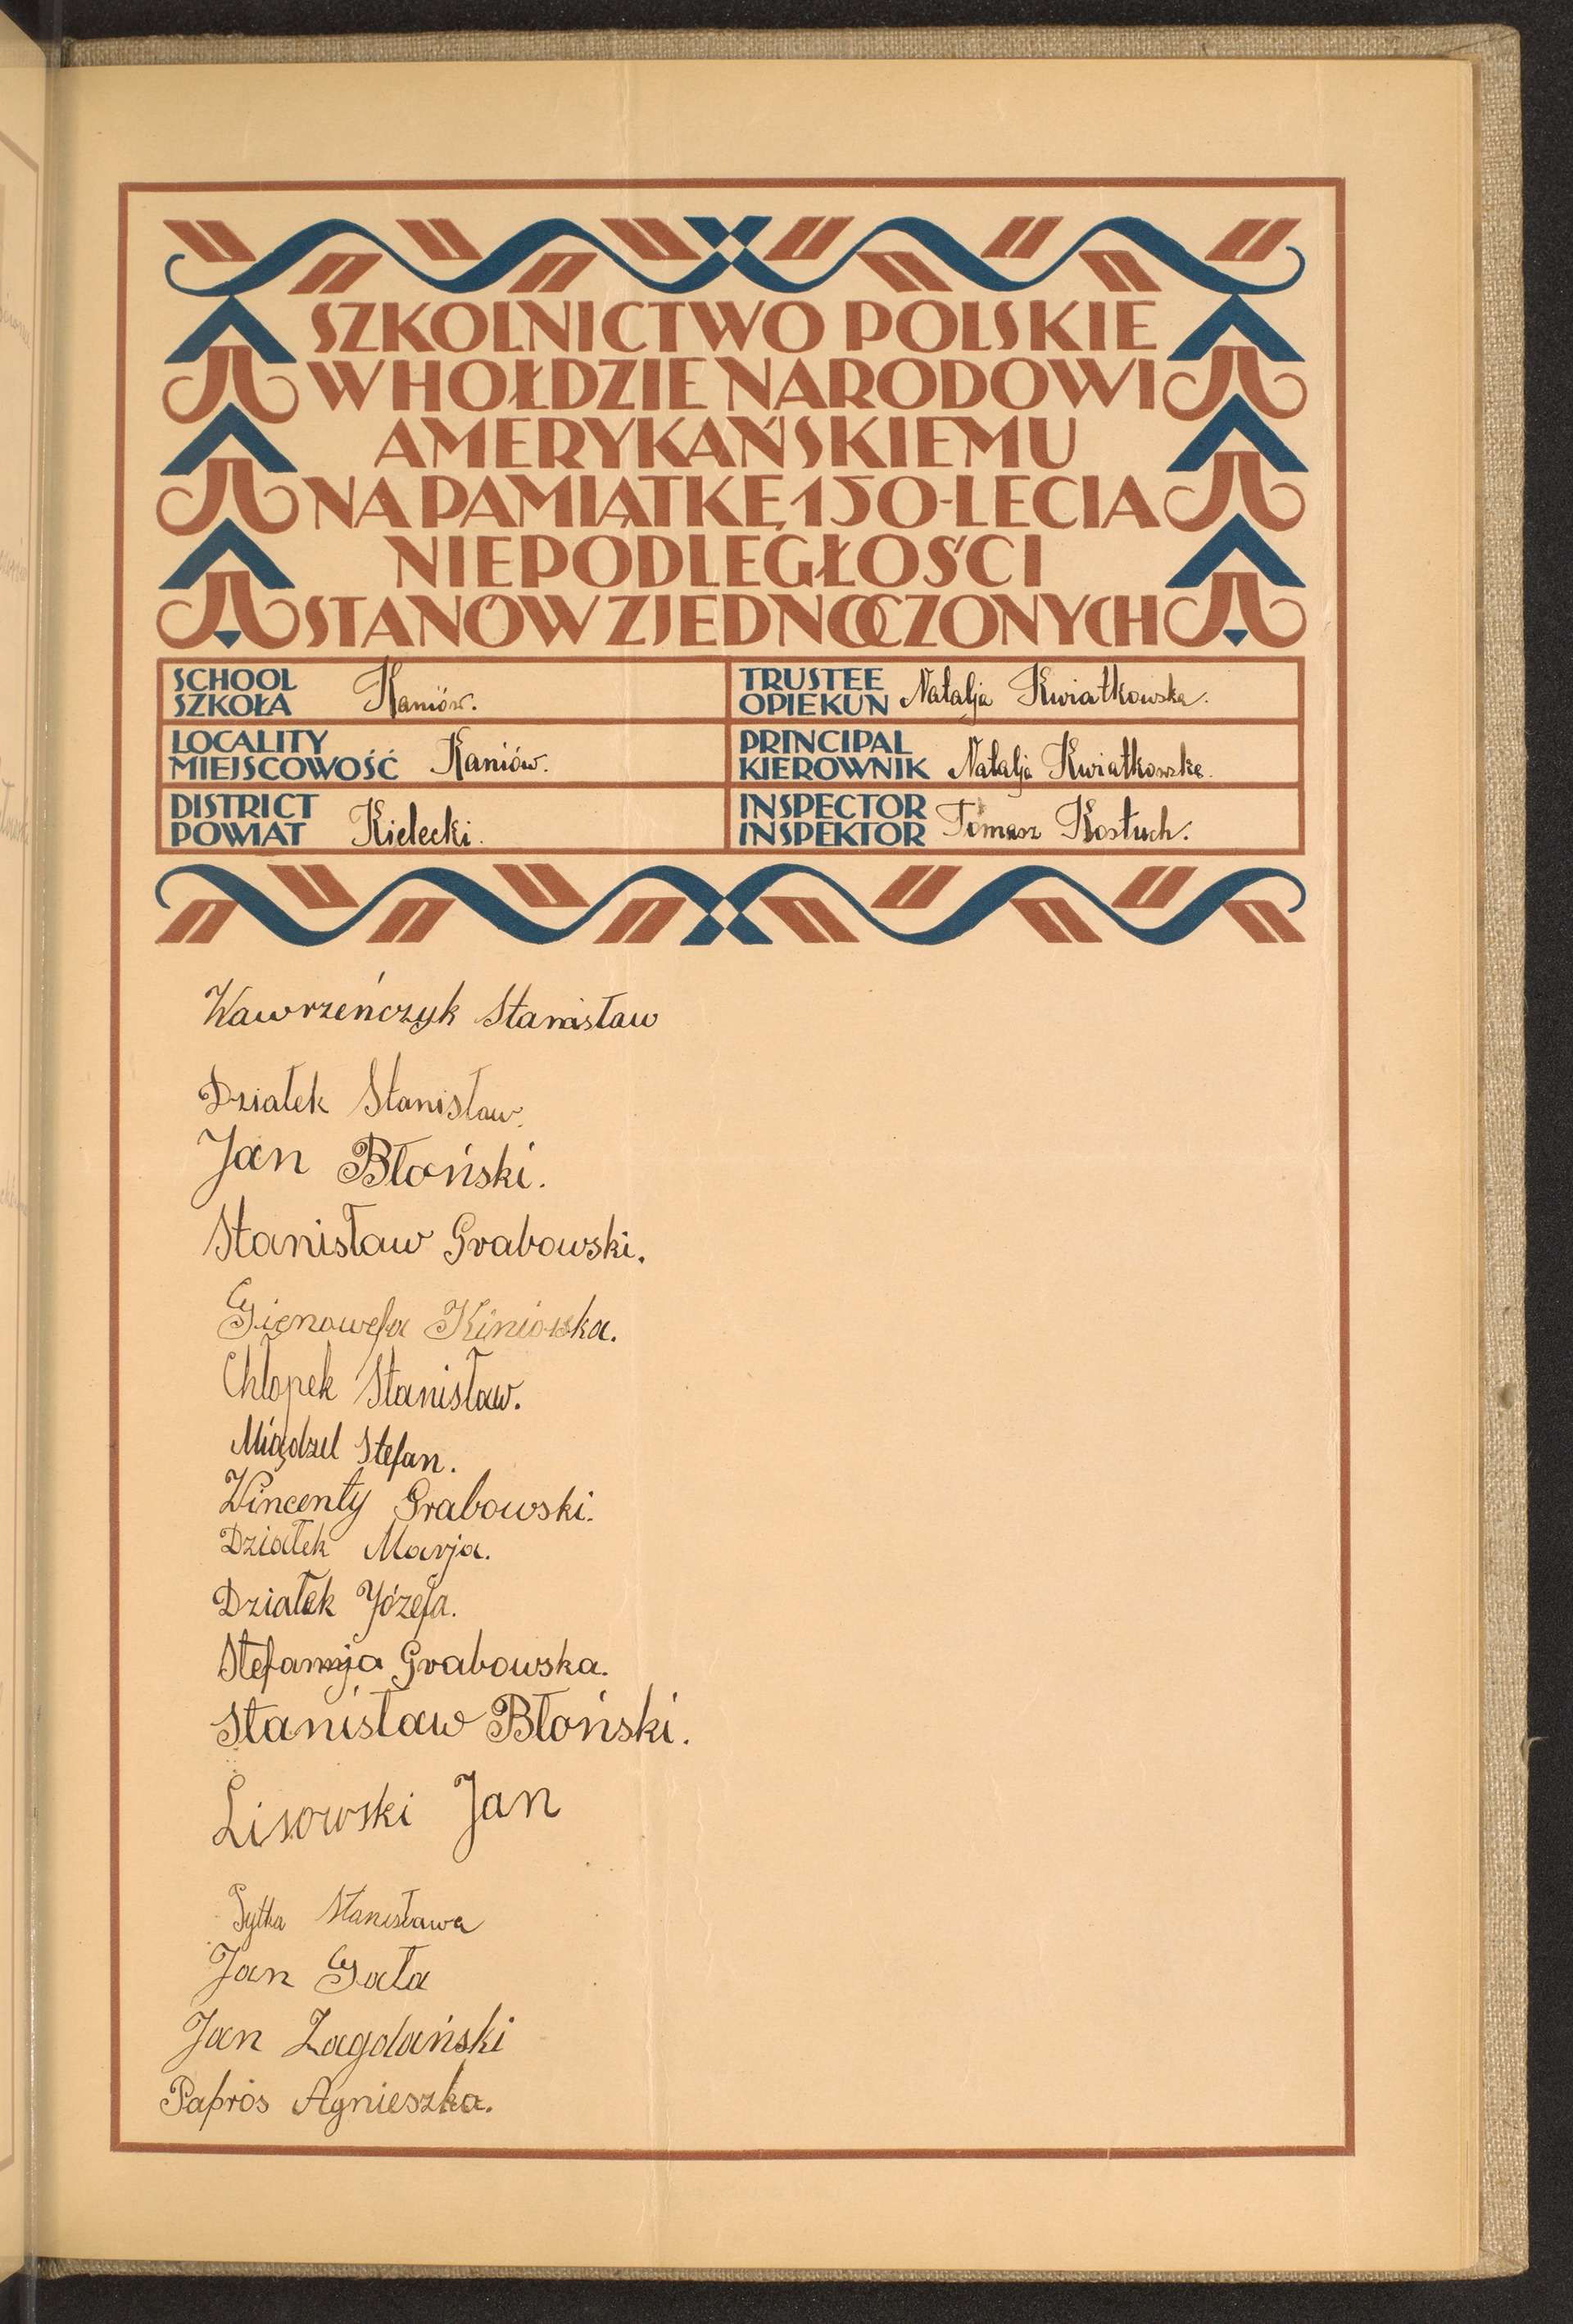 SZKOLNICTWO POLSKIE
W HOŁDZIE NARODOWI
AMERYKAŃSKIEMU
NA PAMIĄTKĘ 150-LECIA
NIEPODLEGŁOŚCI
STANÓW ZJEDNOCZONYCH
SCHOOL
SZKOŁA Kaniów.
TRUSTEE
OPIEKUN Natalja Kwiatkowska.
LOCALITY
MIEJSCOWOŚĆ Kaniów.
PRINCIPAL
KIEROWNIK Natalja Kwiatkowska.
DISTRICT
POWIAT Kielecki.
INSPECTOR
INSPEKTOR Tomasz Kostuch.
Wawrzeńczyk Stanisław
Działek Stanisław.
Jan Błoński.
Stanisław Grabowski.
Gienowefa Kiniowska.
Chłopek Stanisław.
Migdzel Stefan.
Wincenty Grabowski.
Działek Marja.
Działek Józefa.
Stefanja Grabowska.
Stanisław Błoński.
Lisowski Jan
Stanisława
Jan Gała
Jan Zagdański
Paproś Agnieszka.